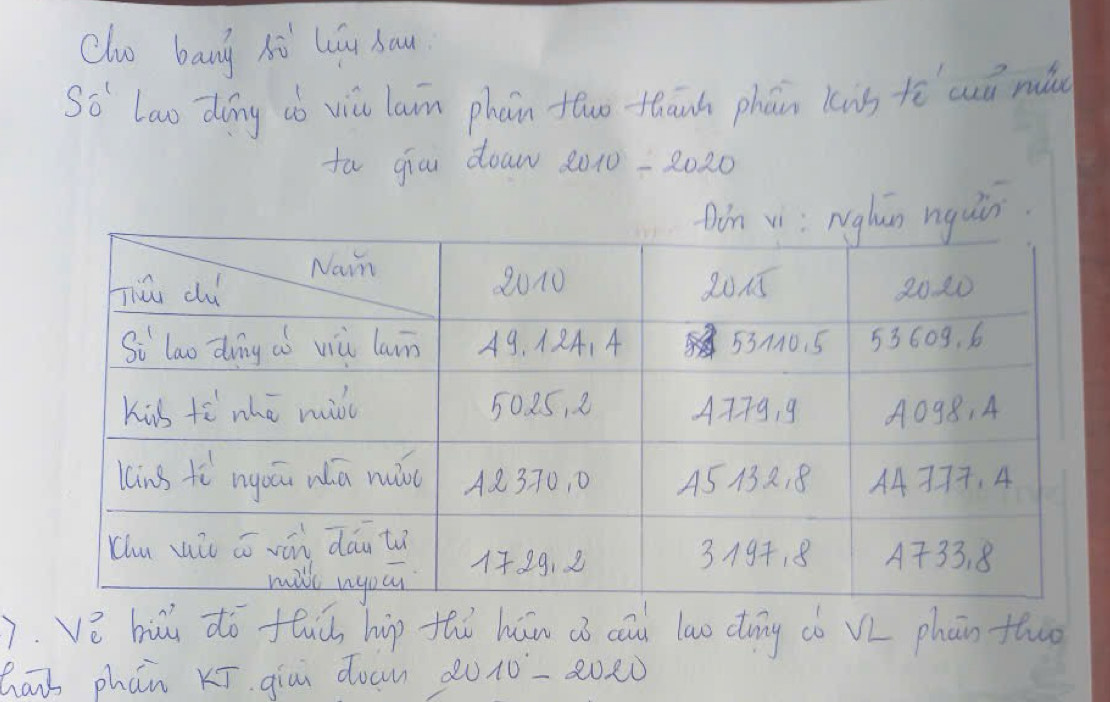 Cho bảng số liệu sau:
Số lao động có việc làm phân theo thành phần kinh tế của nước
ta giai đoạn 2010 - 2020
Đơn vị: Nghìn người.
Năm
Tiêu chí 2010 2015 2020
Số lao động có việc làm 49.124,4 53110,5 53609,6
Kinh tế nhà nước 5025,2 4779,9 4098,4
Kinh tế ngoài nhà nước 42370,0 45132,8 44777,4
Khu vực có vốn đầu tư
nước ngoài 1729,2 3197,8 4733,8
. Vẽ biểu đồ thích hợp thể hiện cơ cấu lao động có VL phân theo
hành phần KT. giai đoạn 2010 - 2020